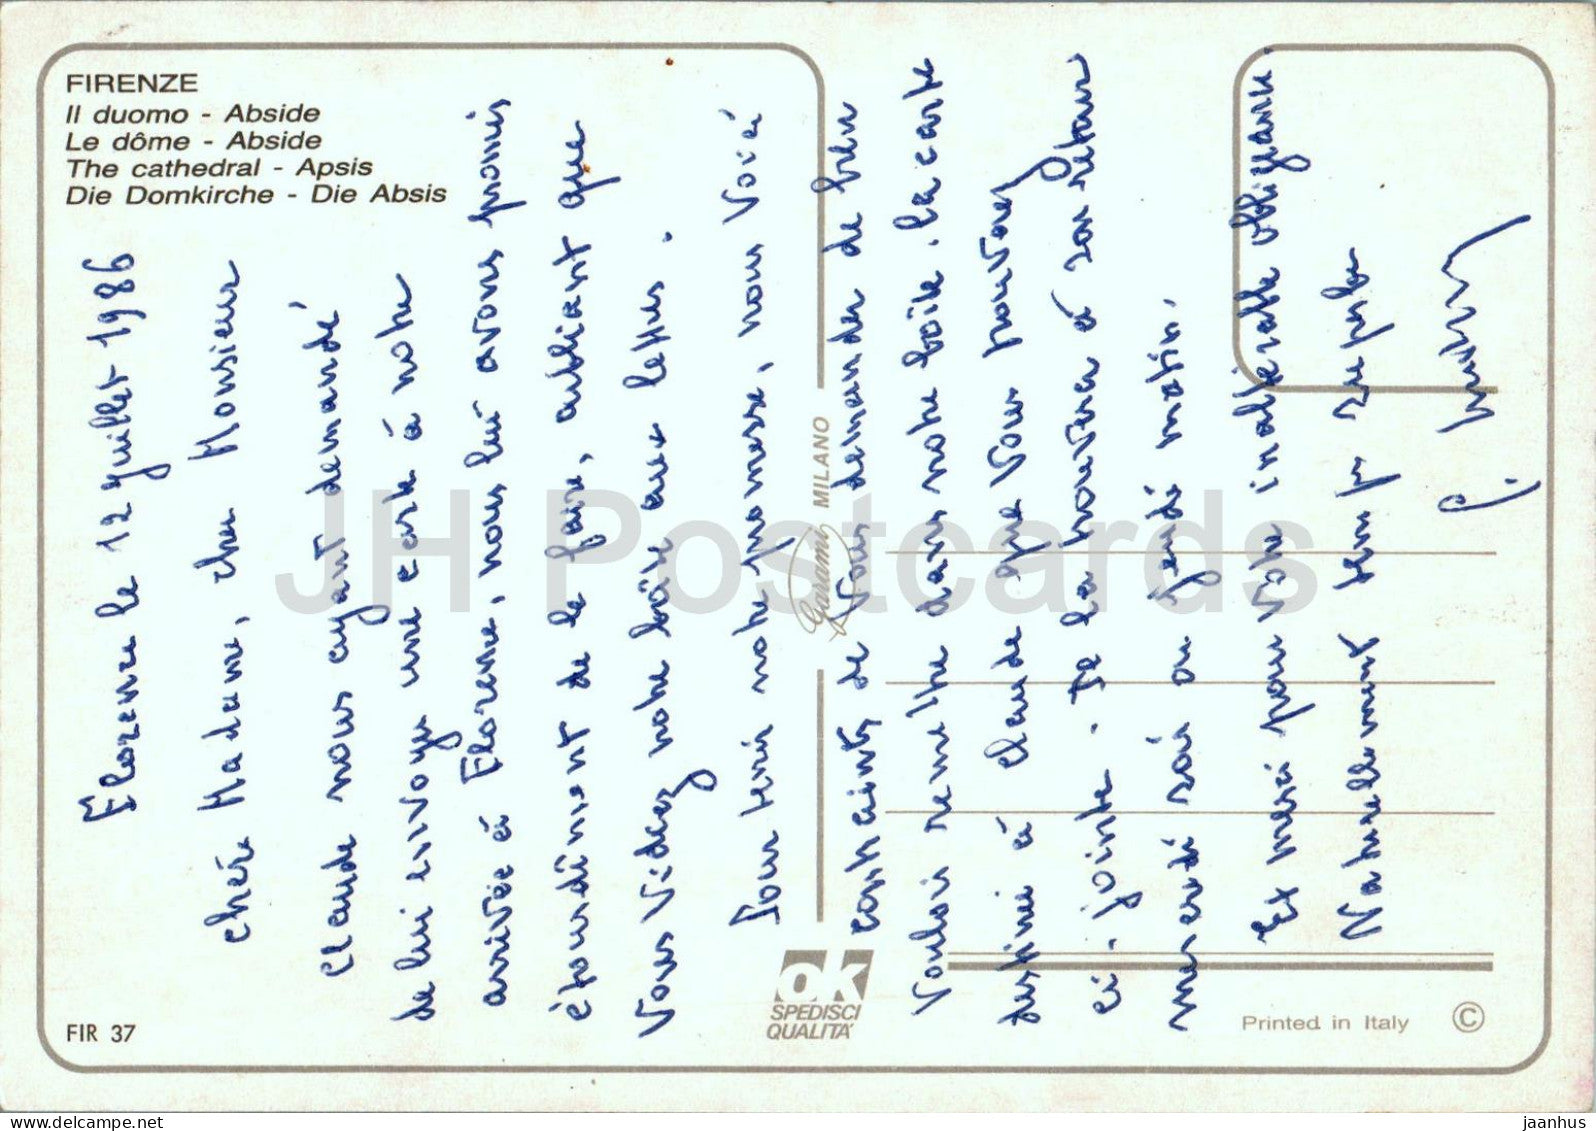 FIRENZE
Il duomo - Abside
Le dôme - Abside
The cathedral - Apsis
Die Domkirche - Die Absis
Florence le 12 juillet 1986
chère Madame, cher Monsieur
Claude nous ayant demandé
de lui envoyer une carte à notre
arrivée à Florence, nous lui avons promis
étourdiment de le faire, oubliant que
vous videz notre boîte aux lettres.
Pour tenir notre promesse, nous voici
contraints de vous demander de bien
vouloir remettre dans notre boîte la carte
destinée à Claude que vous trouverez
ci-jointe. Je la trouverai à son retour
mercredi soir ou jeudi matin.
Et merci pour votre inaltérable obligeance.
Naturellement
JH Postcards
Garami MILANO
OK
SPEDISCI
QUALITÀ
FIR 37
Printed in Italy ©
delcampe.net
jaanhus